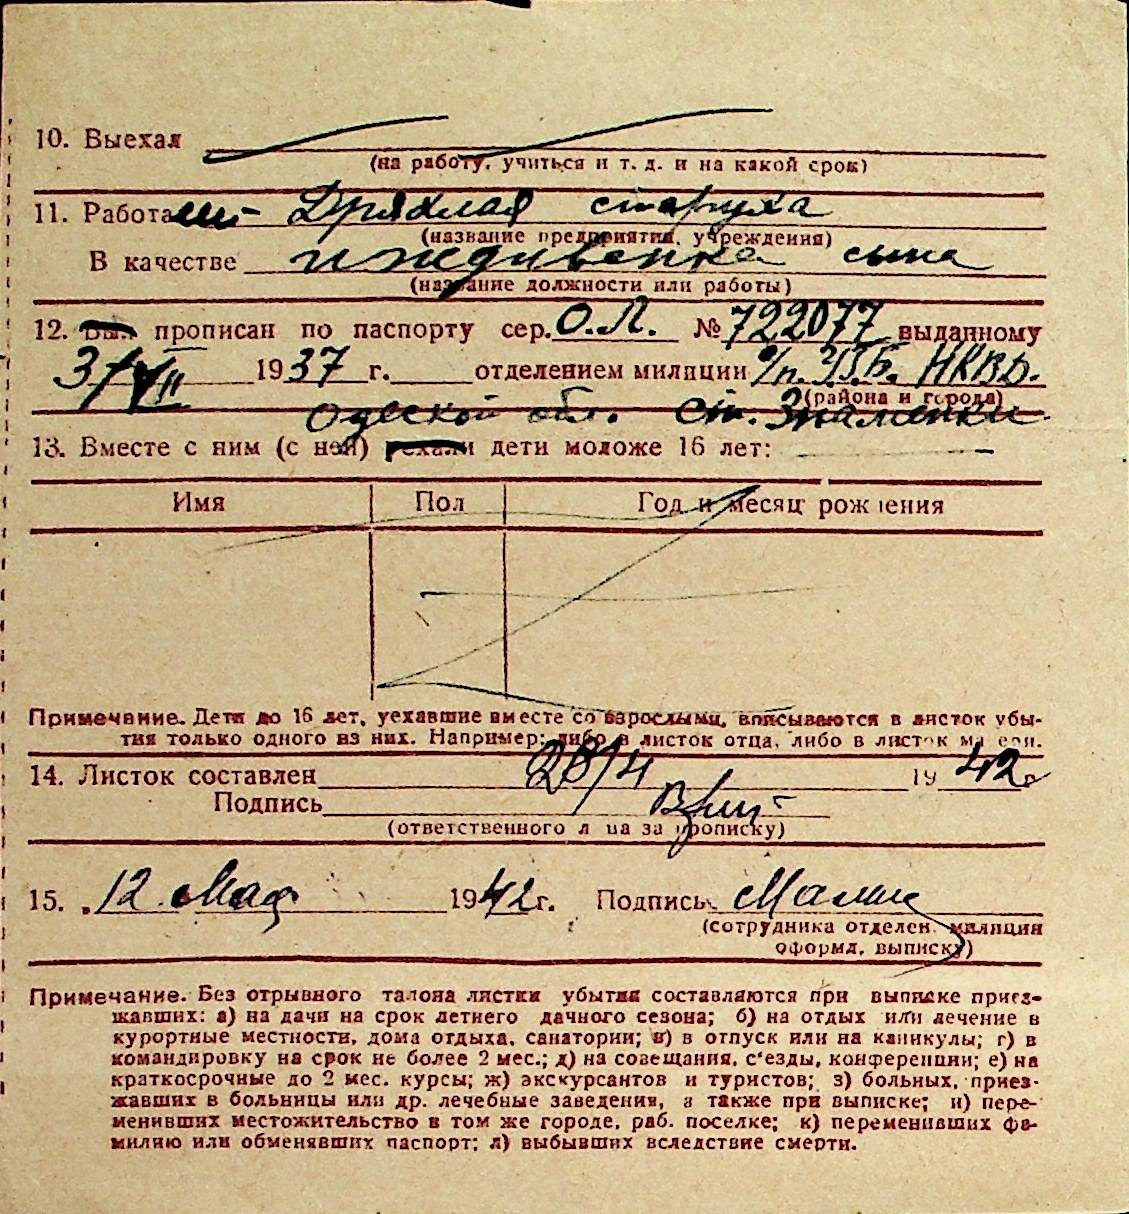 10. Выехал
(на работу, учиться и т. д. и на какой срок)
11. Работает Дряхлая старуха
(название предприятия, учреждения)
В качестве иждивенка сына
(название должности или работы)
12. Был прописан по паспорту сер. О.Л. № 722077 выданному
3/VII 1937 г. отделением милиции НКВД.
(района и города)
Одеской обл. ст. Знаменки
13. Вместе с ним (с ней) уехали дети моложе 16 лет:
Имя Пол Год и месяц рождения
Примечание. Дети до 16 лет, уехавшие вместе со взрослыми, вписываются в листок убы-
тия только одного из них. Например: либо в листок отца, либо в листок матери.
14. Листок составлен 28/4 1942 г
Подпись
(ответственного лица за прописку)
15. 12 Мая 1942 г. Подпись
(сотрудника отделен. милиции
оформл. выписку)
Примечание. Без отрывного талона листки убытия составляются при выписке приез-
жавших: а) на дачи на срок летнего дачного сезона; б) на отдых или лечение в
курортные местности, дома отдыха, санатории; в) в отпуск или на каникулы; г) в
командировку на срок не более 2 мес.; д) на совещания, с'езды, конференции; е) на
краткосрочные до 2 мес. курсы; ж) экскурсантов и туристов; з) больных, приез-
жавших в больницы или др. лечебные заведения, а также при выписке; и) пере-
менивших местожительство в том же городе, раб. поселке; к) переменивших фа-
милию или обменявших паспорт; л) выбывших вследствие смерти.